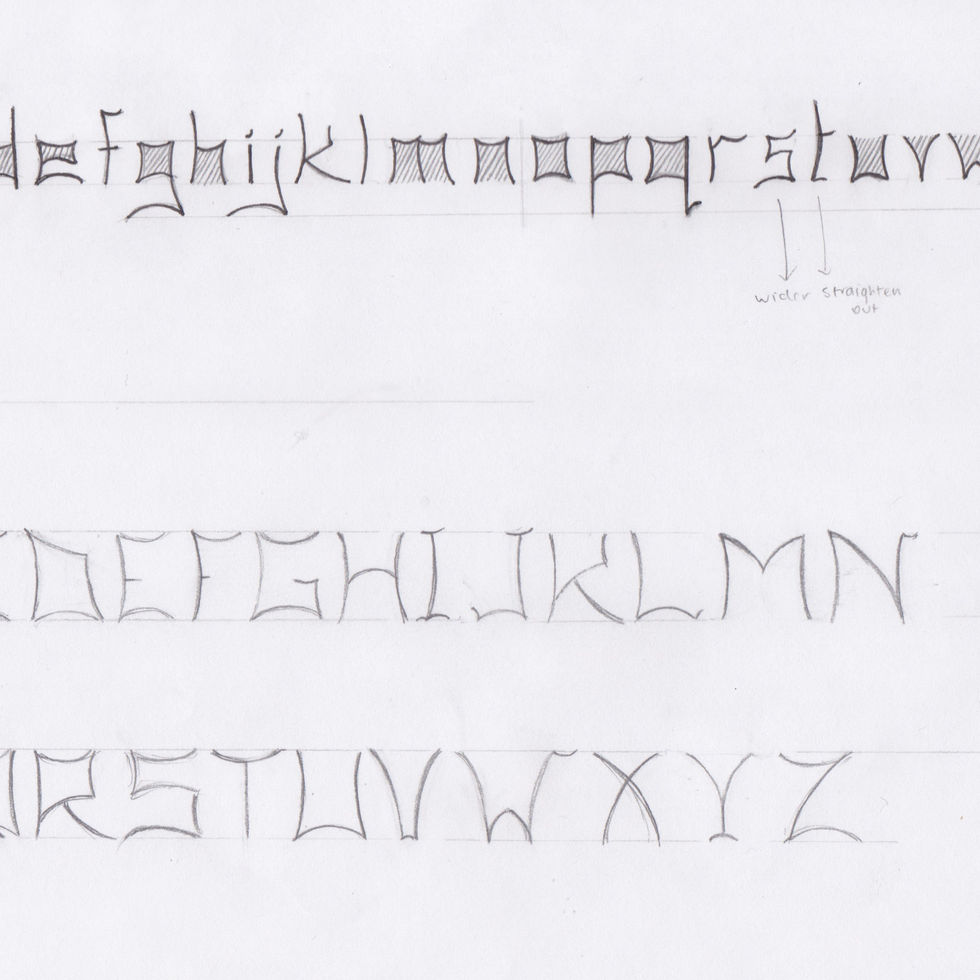 defghijklmnopqrstuvw
wider straighten
out
DEFGHIJKLMN
RSTUVWXYZ